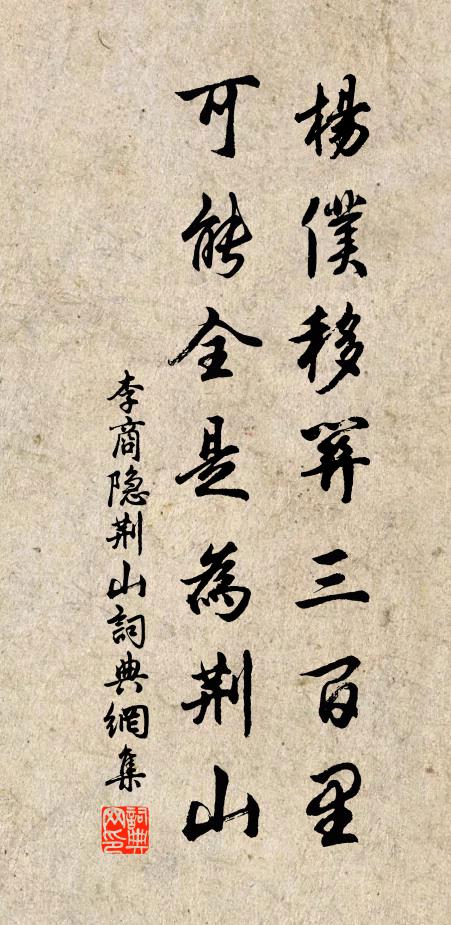 楊僕移關三百里
可能全是為荊山
李商隐荊山詞典網集
詞典网印